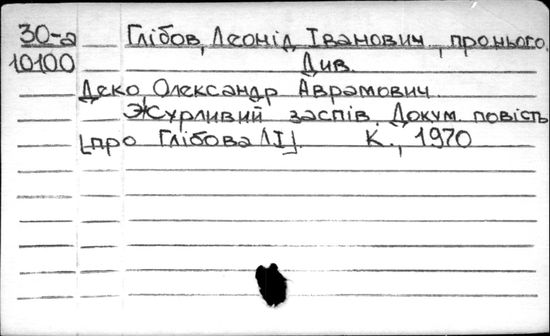 30-а Глібов, Леонід Іванович, про нього.
10100 Див.
Деко, Олександр Аврамович.
Журливий заспів. Докум. повість
[про Глібова Л І]. К., 1970